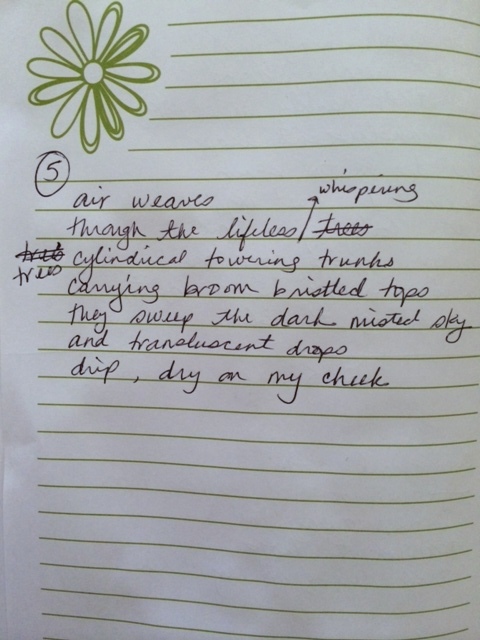 5
air weaves
whispering
through the lifeless / trees
trees cylindrical towering trunks
trees
carrying broom bristled tops
they sweep the dark misted sky
and transluscent drops
drip, dry on my cheek